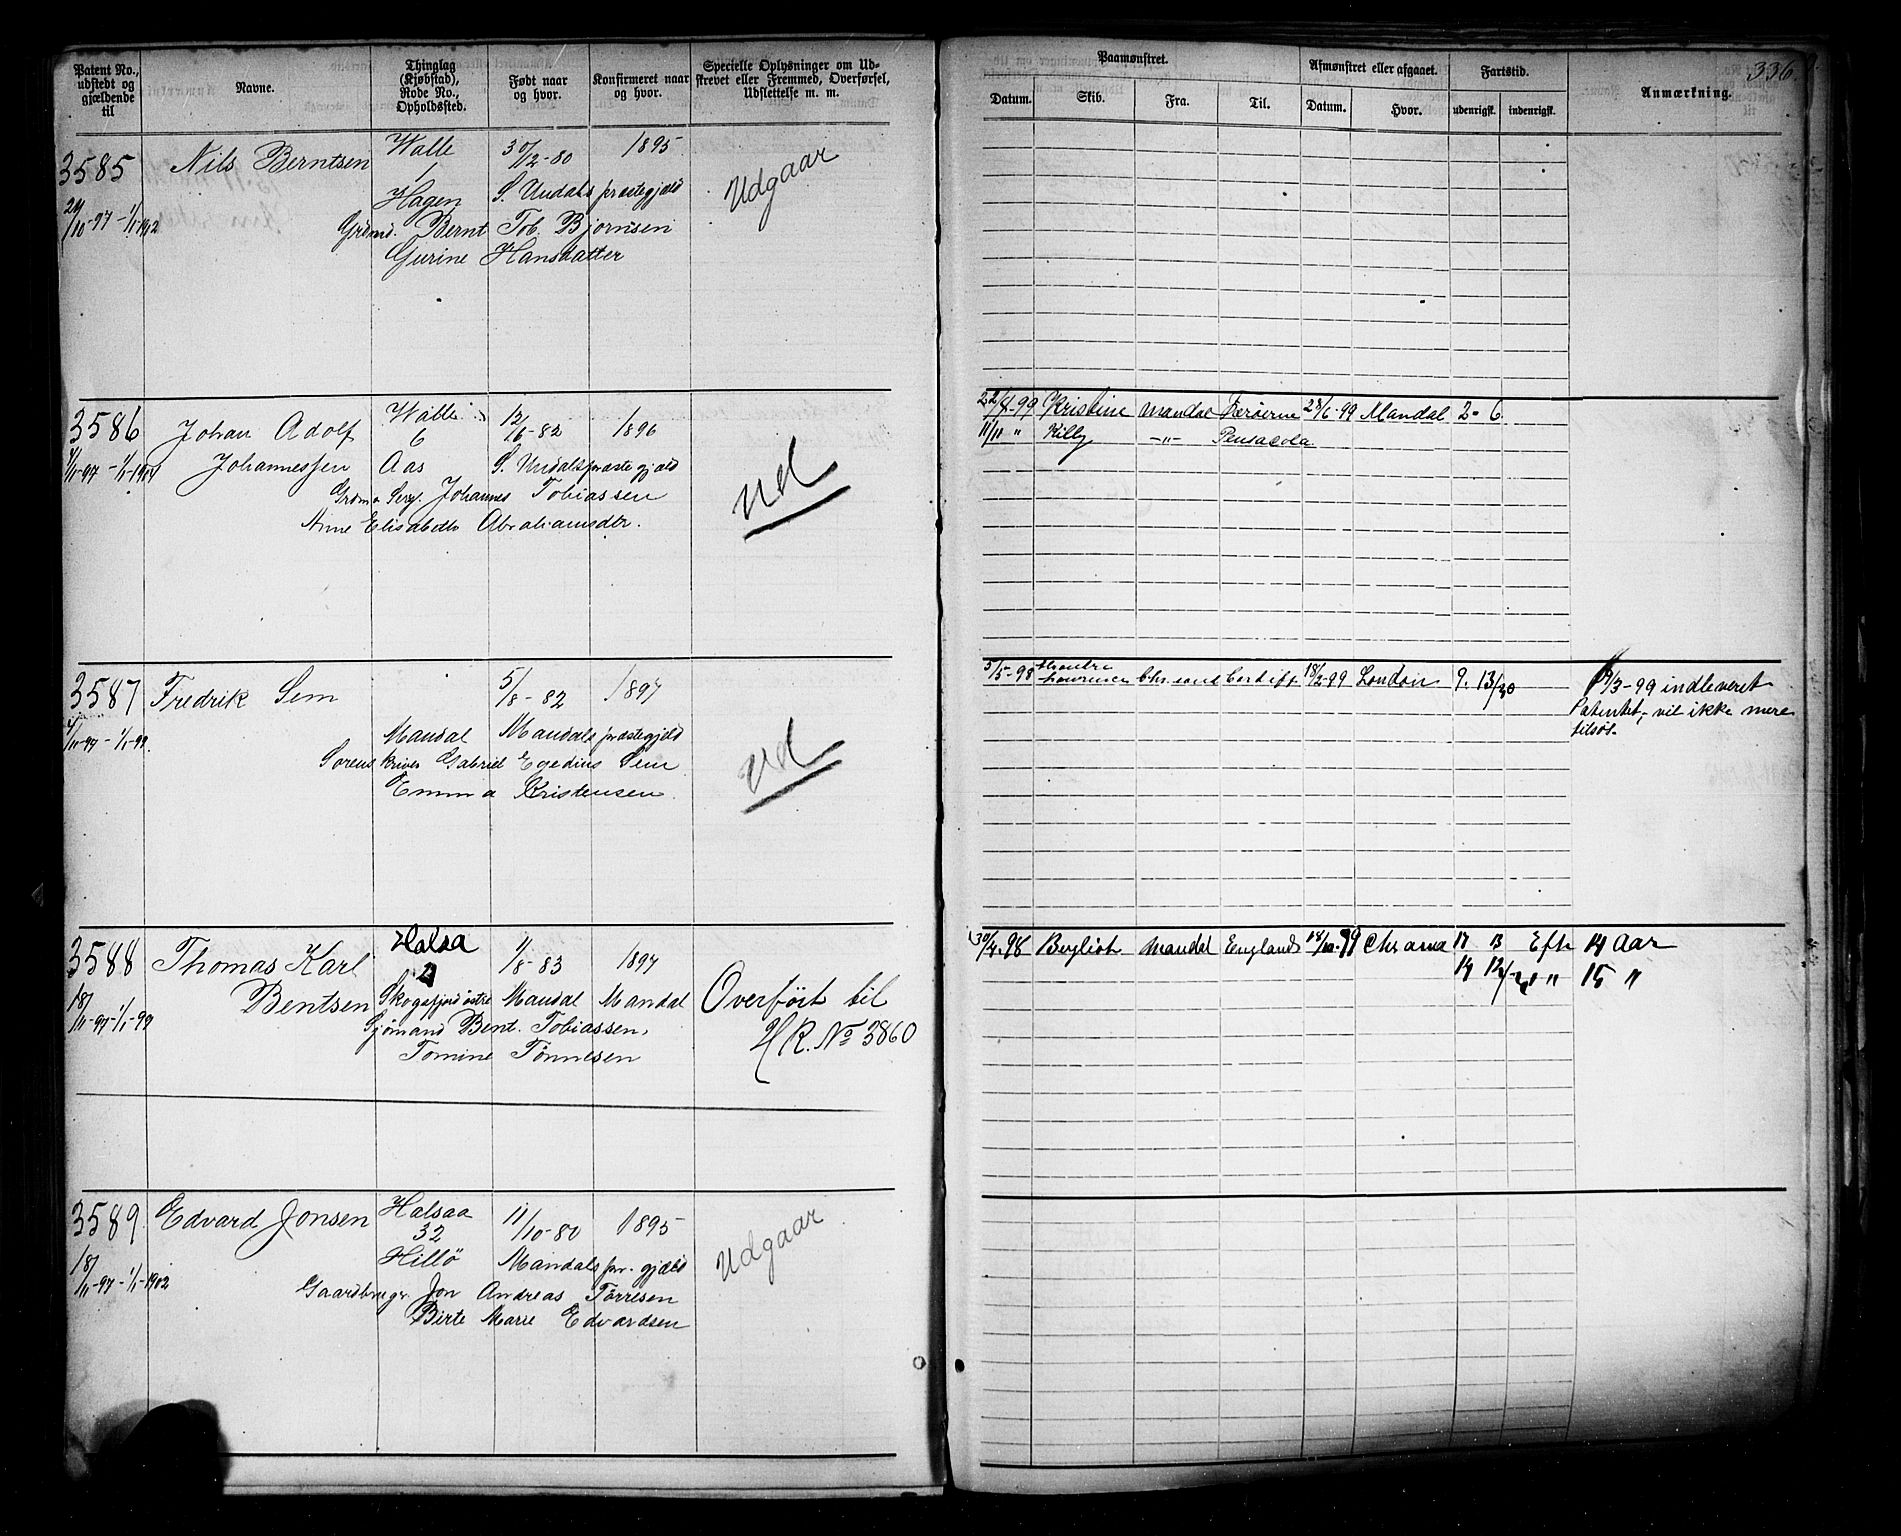 336.
Patent No., udstedt og gjældende til
Navne.
Thinglag (Kjøbstad), Rode No., Opholdssted.
Født naar og hvor.
Konfirmeret naar og hvor.
Specielle Oplysninger om Udskrevet eller Fremmed, Overførsel, Udslettelse m. m.
Paamønstret.
Datum. Skib. Fra. Til.
Afmønstret eller afgaaet.
Datum. Hvor.
Fartstid.
udenrigsk. indenrigsk.
Anmærkning.
3585 Nils Berntsen Walle 30/12-80 1895 Udgaar
1
29/10-97 - 1/1-1902 Hagen S. Undals præstegjæld
Grdmd. Bernt Tob. Bjornsen
Gurine Hansdatter
3586 Johan Adolf Walle 12/6-82 1896 ud
6
Johannessen Aas S. Undals præstegjæld
Johannes Tobiassen
Anne Elisabeth Abrahamsdtr.
-99 Kristine Mandal Færøerne 28/6-99 Mandal 2- 6.
11/11 " -"- Pensacola
3587 Fredrik Sem 5/8-82 1897 ud
Mandal Mandals præstegjeld
Sorenskriver Gabriel Egedius Sem
Emma Kristensen
5/5-98 Chr.sand Cardiff 18/2-99 London 9. 13/30
/3-99 indleveret
Patentet, vil ikke mere
tilsøs.
3588 Thomas Karl Halsaa 1/8-83 1897
2
Bentsen Skogsfjord østre Mandal Mandal Overført til
18/11-97-1/1-99 Sjømand Bent Tobiassen, H R. No 3860
Tomine Tønnesen
30/4-98 Bergliot Mandal England 18/10-99 Chr.ania 17 13 Eft 14 Aar
" 15 "
3589 Edvard Jonsen Halsaa 11/10-80 1895 Udgaar
32
18/11-97-1/1-1902 Hillø Mandals pr. gjæld
Gaardbruger Jon Andreas Tørresen
Birte Marie Edvardsen